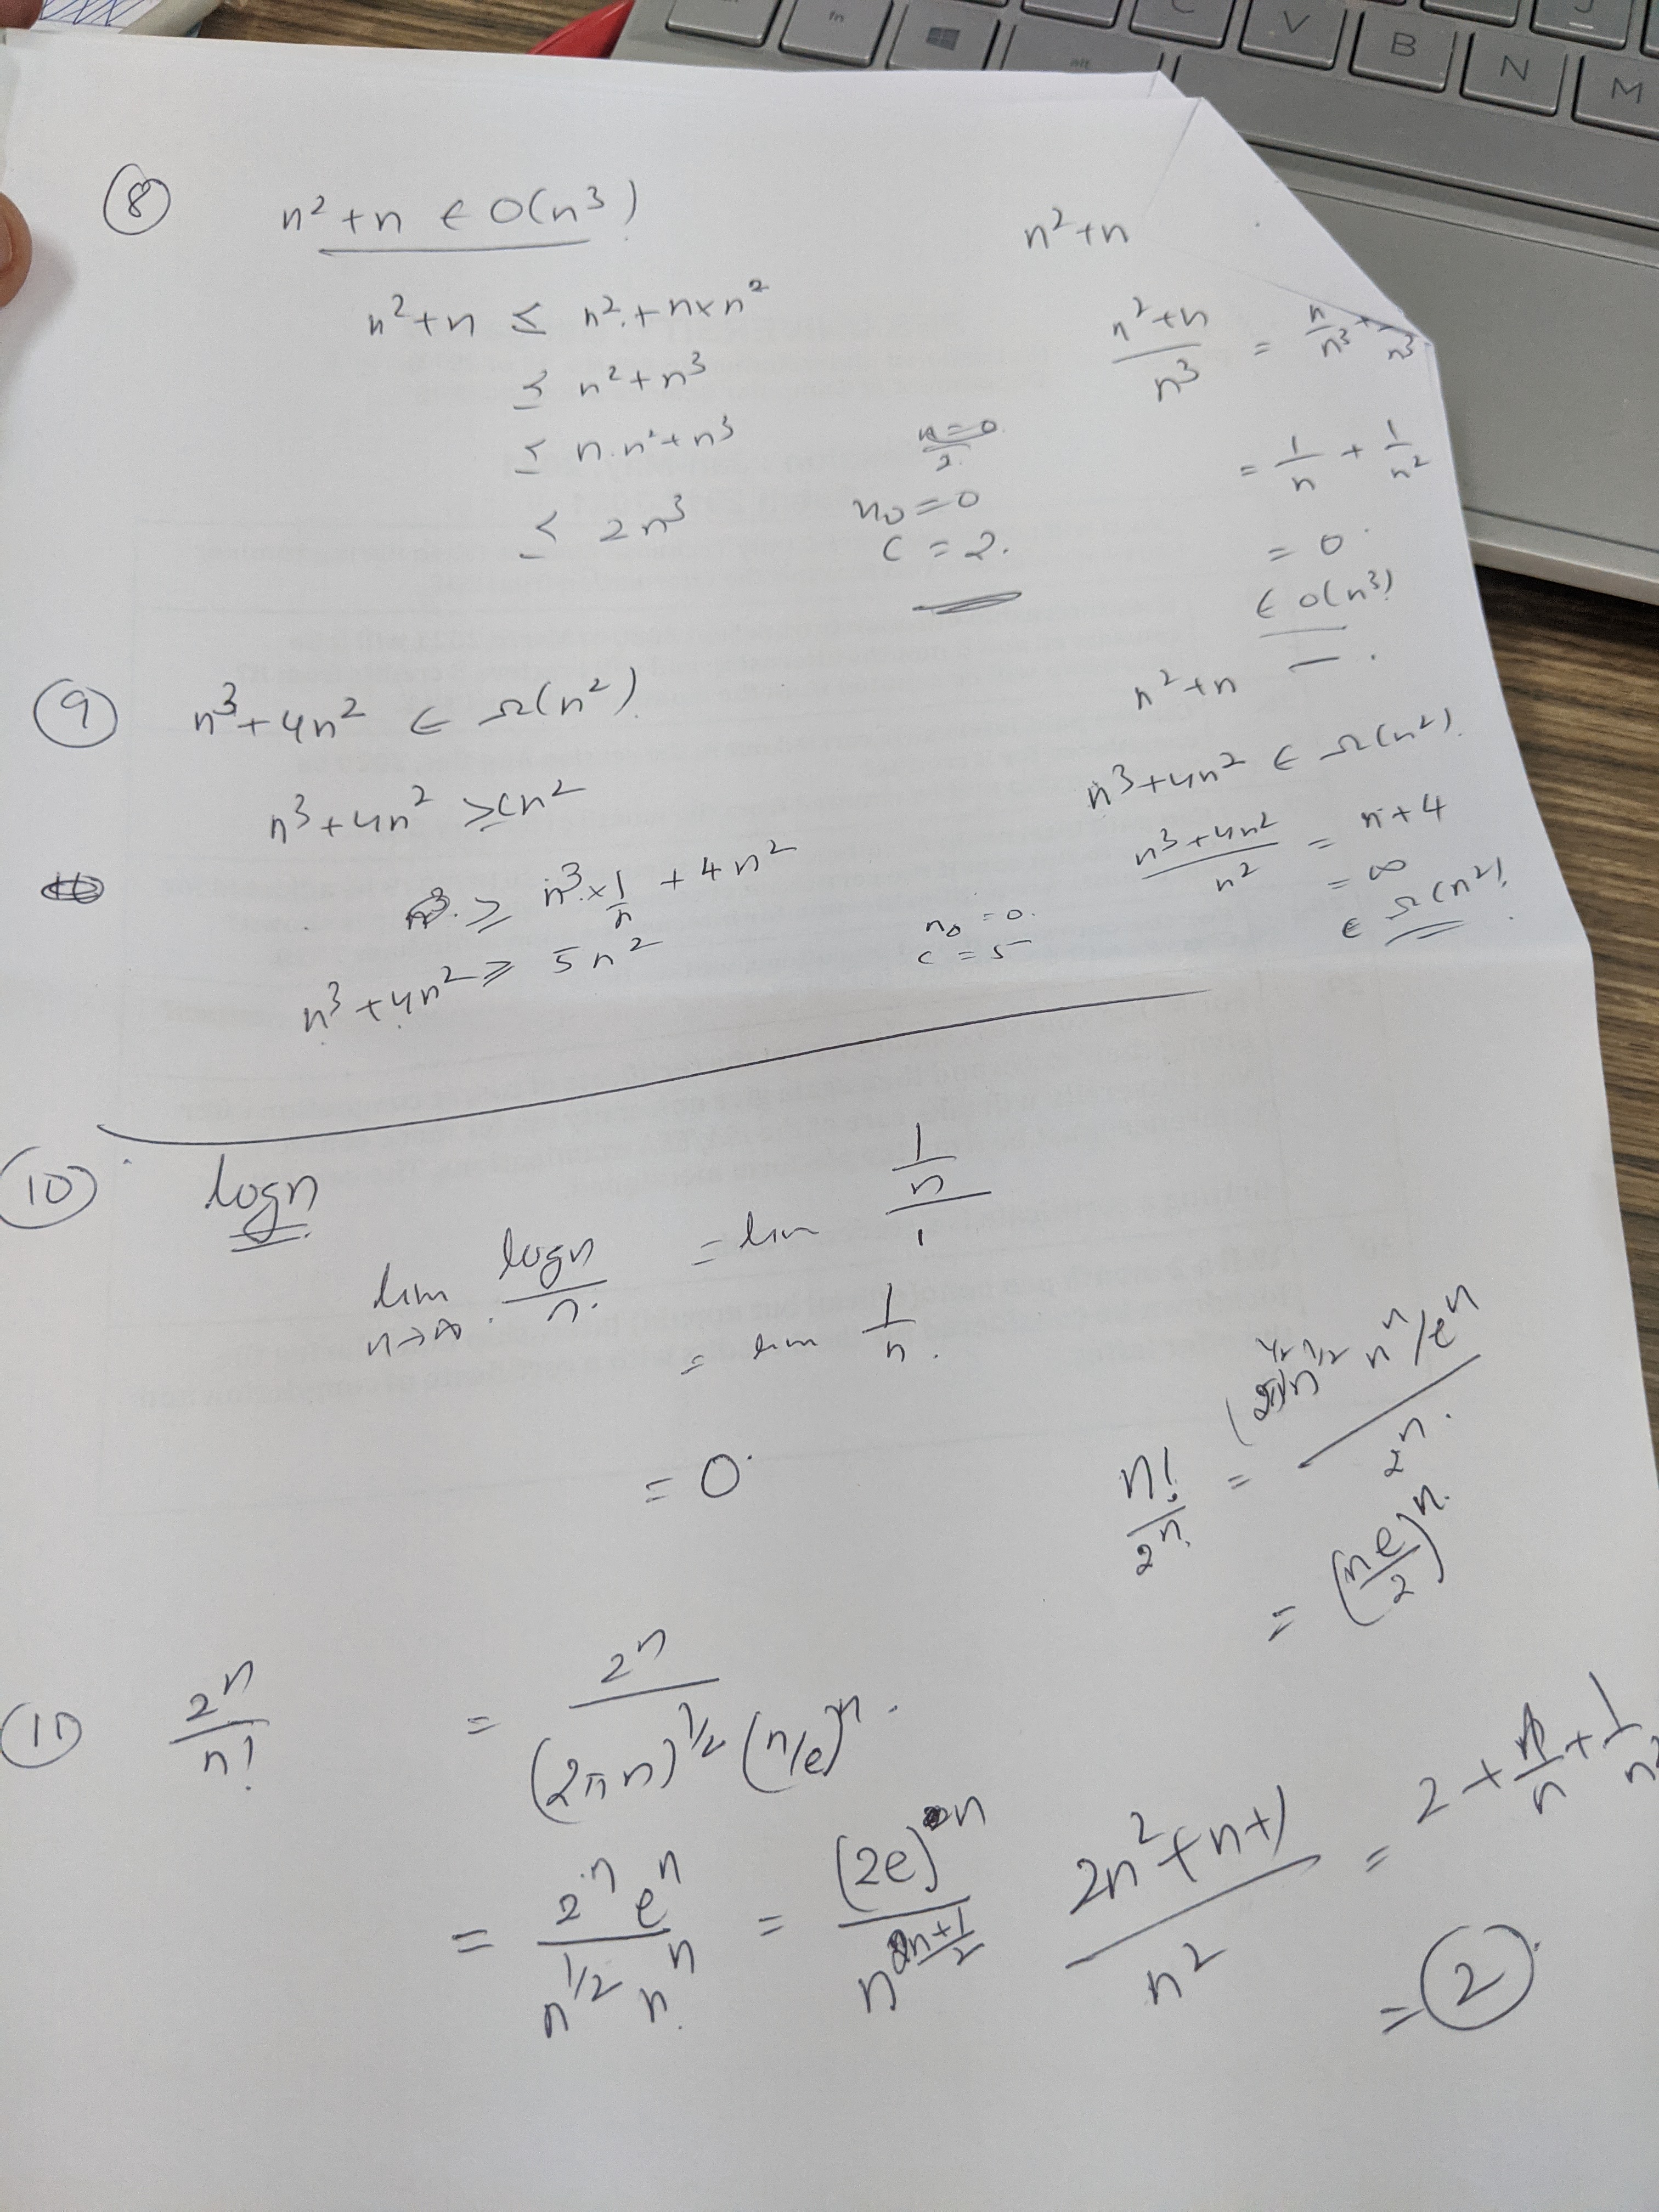 fn
alt
C V B N M
⑧ n²+n ∈ O(n³)
n²+n ≤ n²+n×n²
≤ n²+n³
≤ n.n²+n³
≤ 2n³
n₀=0
c=2.
n²+n
(n²+n)/n³ = n/n³ +
= 1/n + 1/n²
= 0.
∈ O(n³)
⑨ n³+4n² ∈ Ω(n²)
n³+4n² ≥ cn²
≥ n³×1/n + 4n²
n³+4n² ≥ 5n²
n₀=0.
c=5
n²+n
n³+4n² ∈ Ω(n²).
(n³+4n²)/n² = n+4
= ∞
∈ Ω(n²).
⑩ logn
lim n→∞ logn/n. = lim (1/n)/1
= lim 1/n.
= 0.
n!/2ⁿ = (2πn)^1/2 nⁿ/eⁿ / 2ⁿ.
= (ne/2)ⁿ.
⑪ 2ⁿ/n! = 2ⁿ/((2πn)^1/2 (n/e)ⁿ).
= 2ⁿ eⁿ/(n^1/2 nⁿ) = (2e)ⁿ/n
(2n²+n+1)/n² = 2+ /n+1/n²
= ②